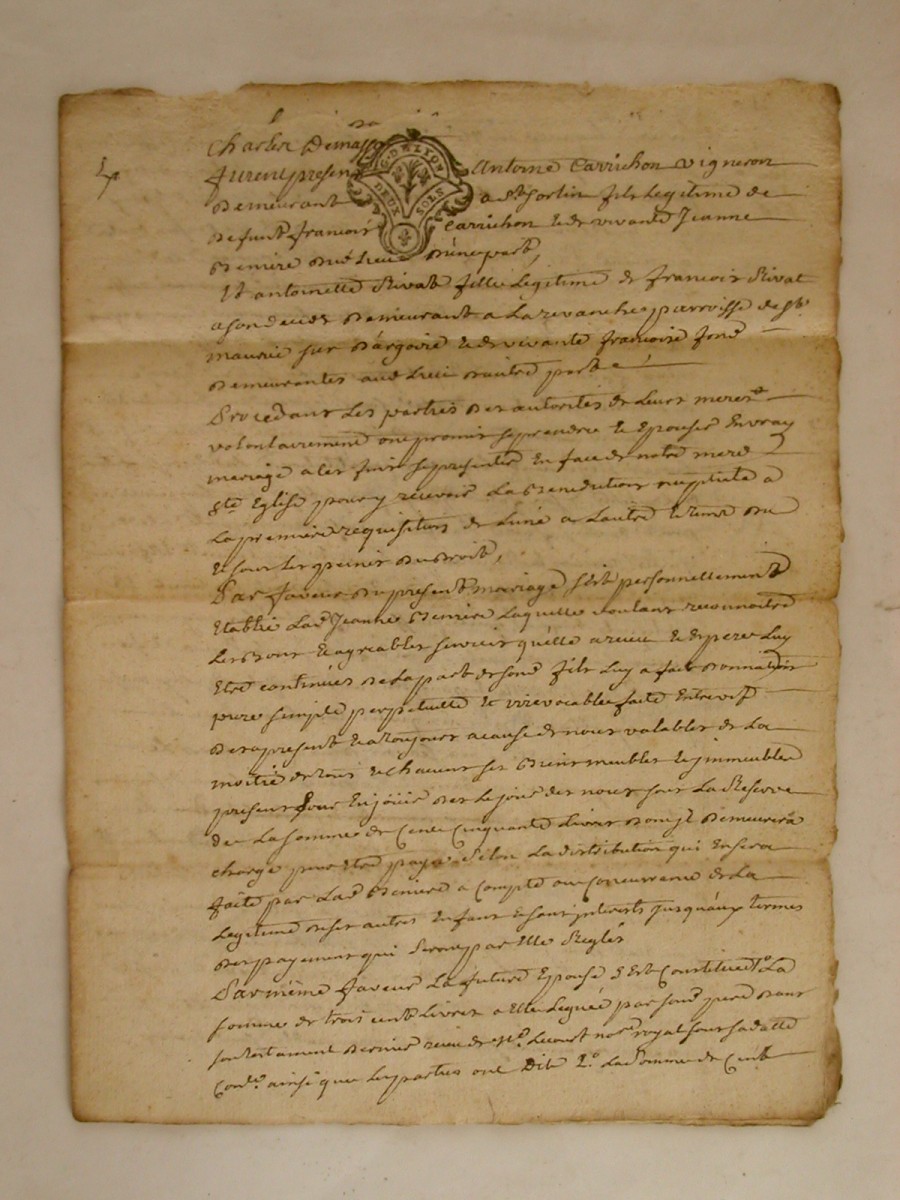 Charles Demas
G. DE LYON
DEUX SOLS
furent presen Antoine Carrichon vigneron
Demeurant a St Sorlin fils Legitime de
Defunt francois Carrichon & de vivante Jeanne
Beniere Dud Lieu D'une part,
Et antoinette Rivat fille Legitime de francois Rivat
a son deces Demeurant a La revanche parroisse de St
maurice sur Dargoire & de vivante francoise
Demeurantes aud Lieu D'autre part
Procedant Les parties Des autorités de Leurs meres
volontairement ont promis se prendre & Epouser En vray
mariage a ces fins se presenter En face de notre mere
ste Eglise pour y recevoir La Benediction nuptiale a
La premiere requisition de L'une a L'autre
& sous Les peines Du Droit,
Par faveur Du present mariage s'est personnellement
Etablie Lad Jeanne Beniere Laquelle voulant reconnoitre
Les Bons & agreables services qu'elle a reçu & Espere Luy
Etre continués De La part de fils Luy a fait Donnation
pure simple perpetuelle & irrevocable faite Entre vifs
Des a present & a toujours a cause de nous valable de La
moitié de tous & chacuns ses Biens meubles & immeubles
presents Pour En jouir Des Le jour des noces sous La Reserve
de La somme de Cent Cinquante Livres Dont il Demeurera
chargé pour Etre payé Selon La distribution qui En sera
faite par Lad Beniere a Compte ou Concurrence de La
Legitime De ses autres Enfans & sans interets jusqu'aux termes
Des payement qui seront par Elle Reglés
Par même faveur La future Epouse s'Est Constituée 1o La
somme de trois cent Livres a Elle Leguée par pere Dans
son testament Dernier reçu de Me nore royal sous sa datte
ainsi que Les parties ont Dit 2o La Somme de Cent